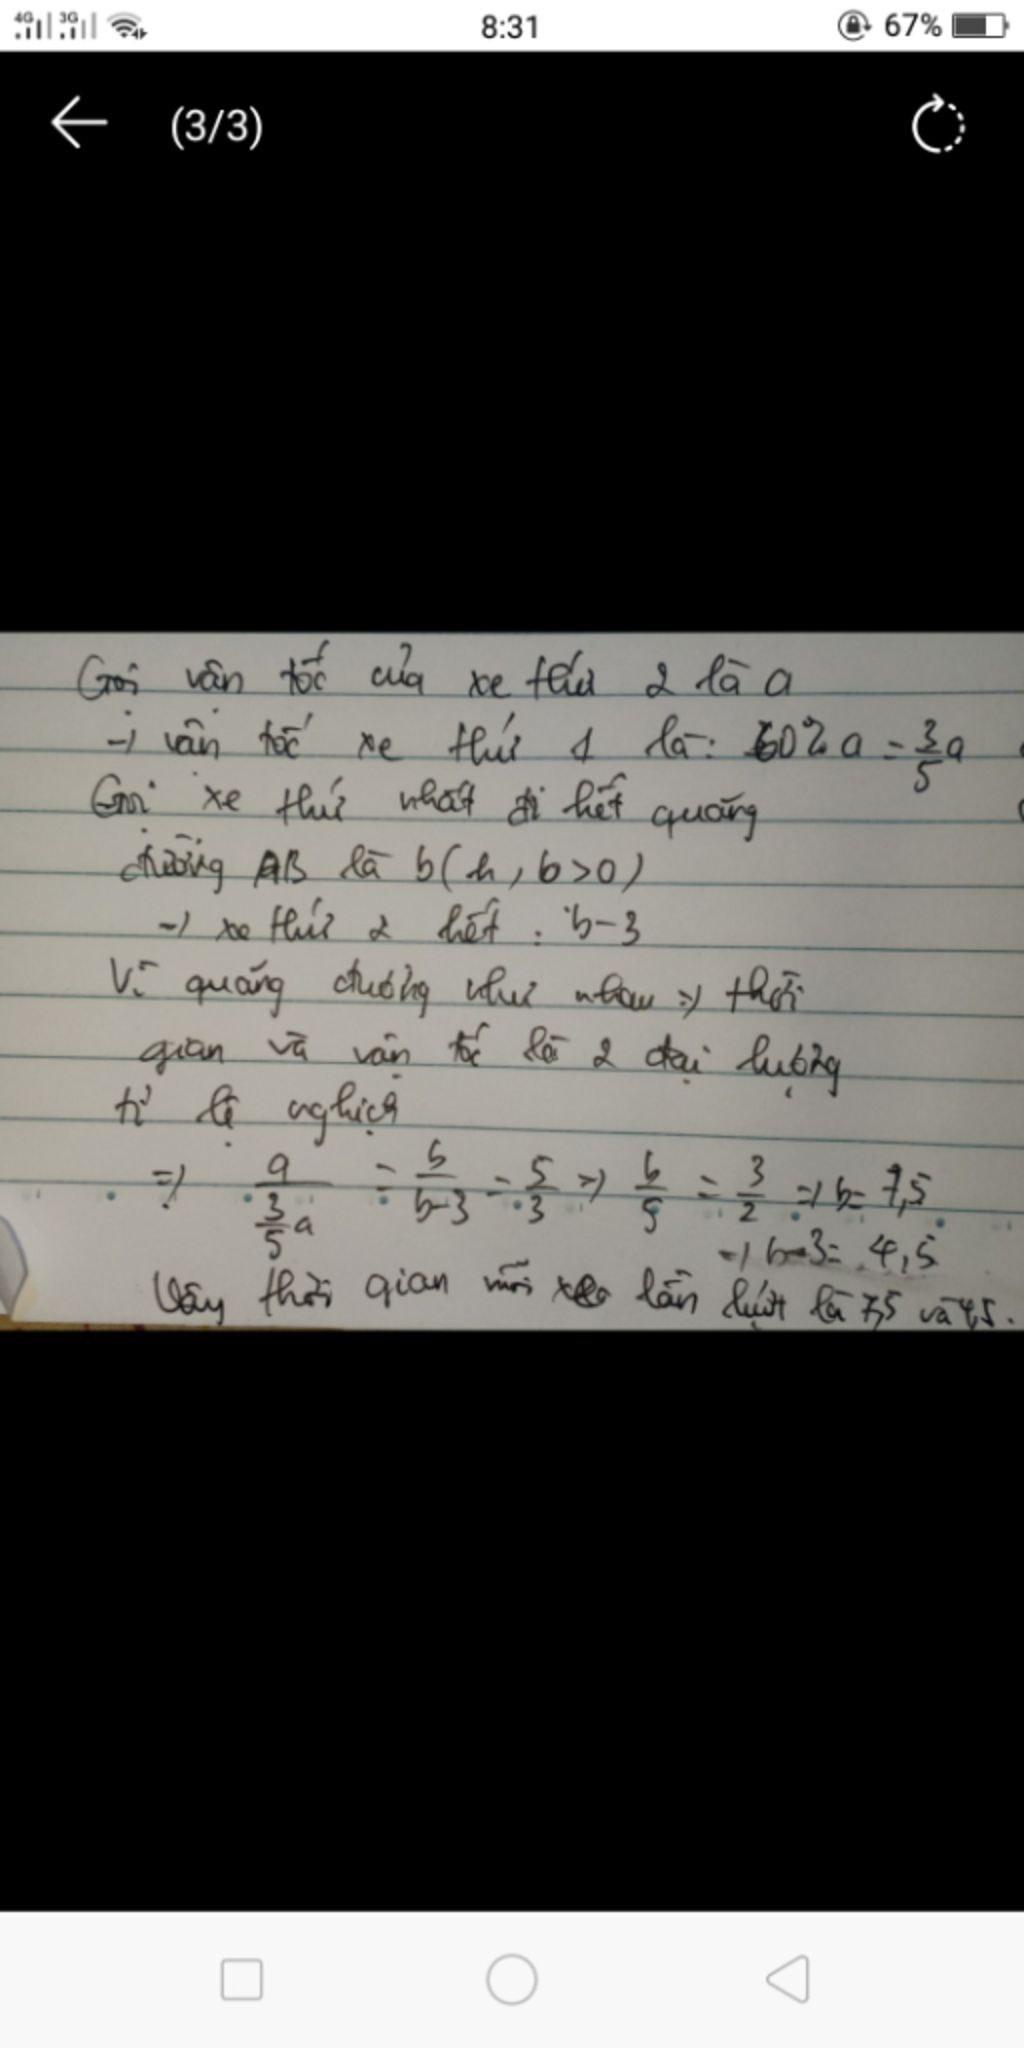 4G 3G 8:31 67%
(3/3)
Gọi vận tốc của xe thứ 2 là a
→ vận tốc xe thứ 1 là: 60% a = 3/5 a
Gọi xe thứ nhất đi hết quãng
đường AB là b (h, b>0)
→ xe thứ 2 hết : b-3
Vì quãng đường như nhau => thời
gian và vận tốc là 2 đại lượng
tỉ lệ nghịch
=> a/(3/5 a) = b/(b-3) = 5/3 => b/5 = 3/2 => b = 7,5
→ b-3 = 4,5
Vậy thời gian mỗi xe lần lượt là 7,5 và 4,5.